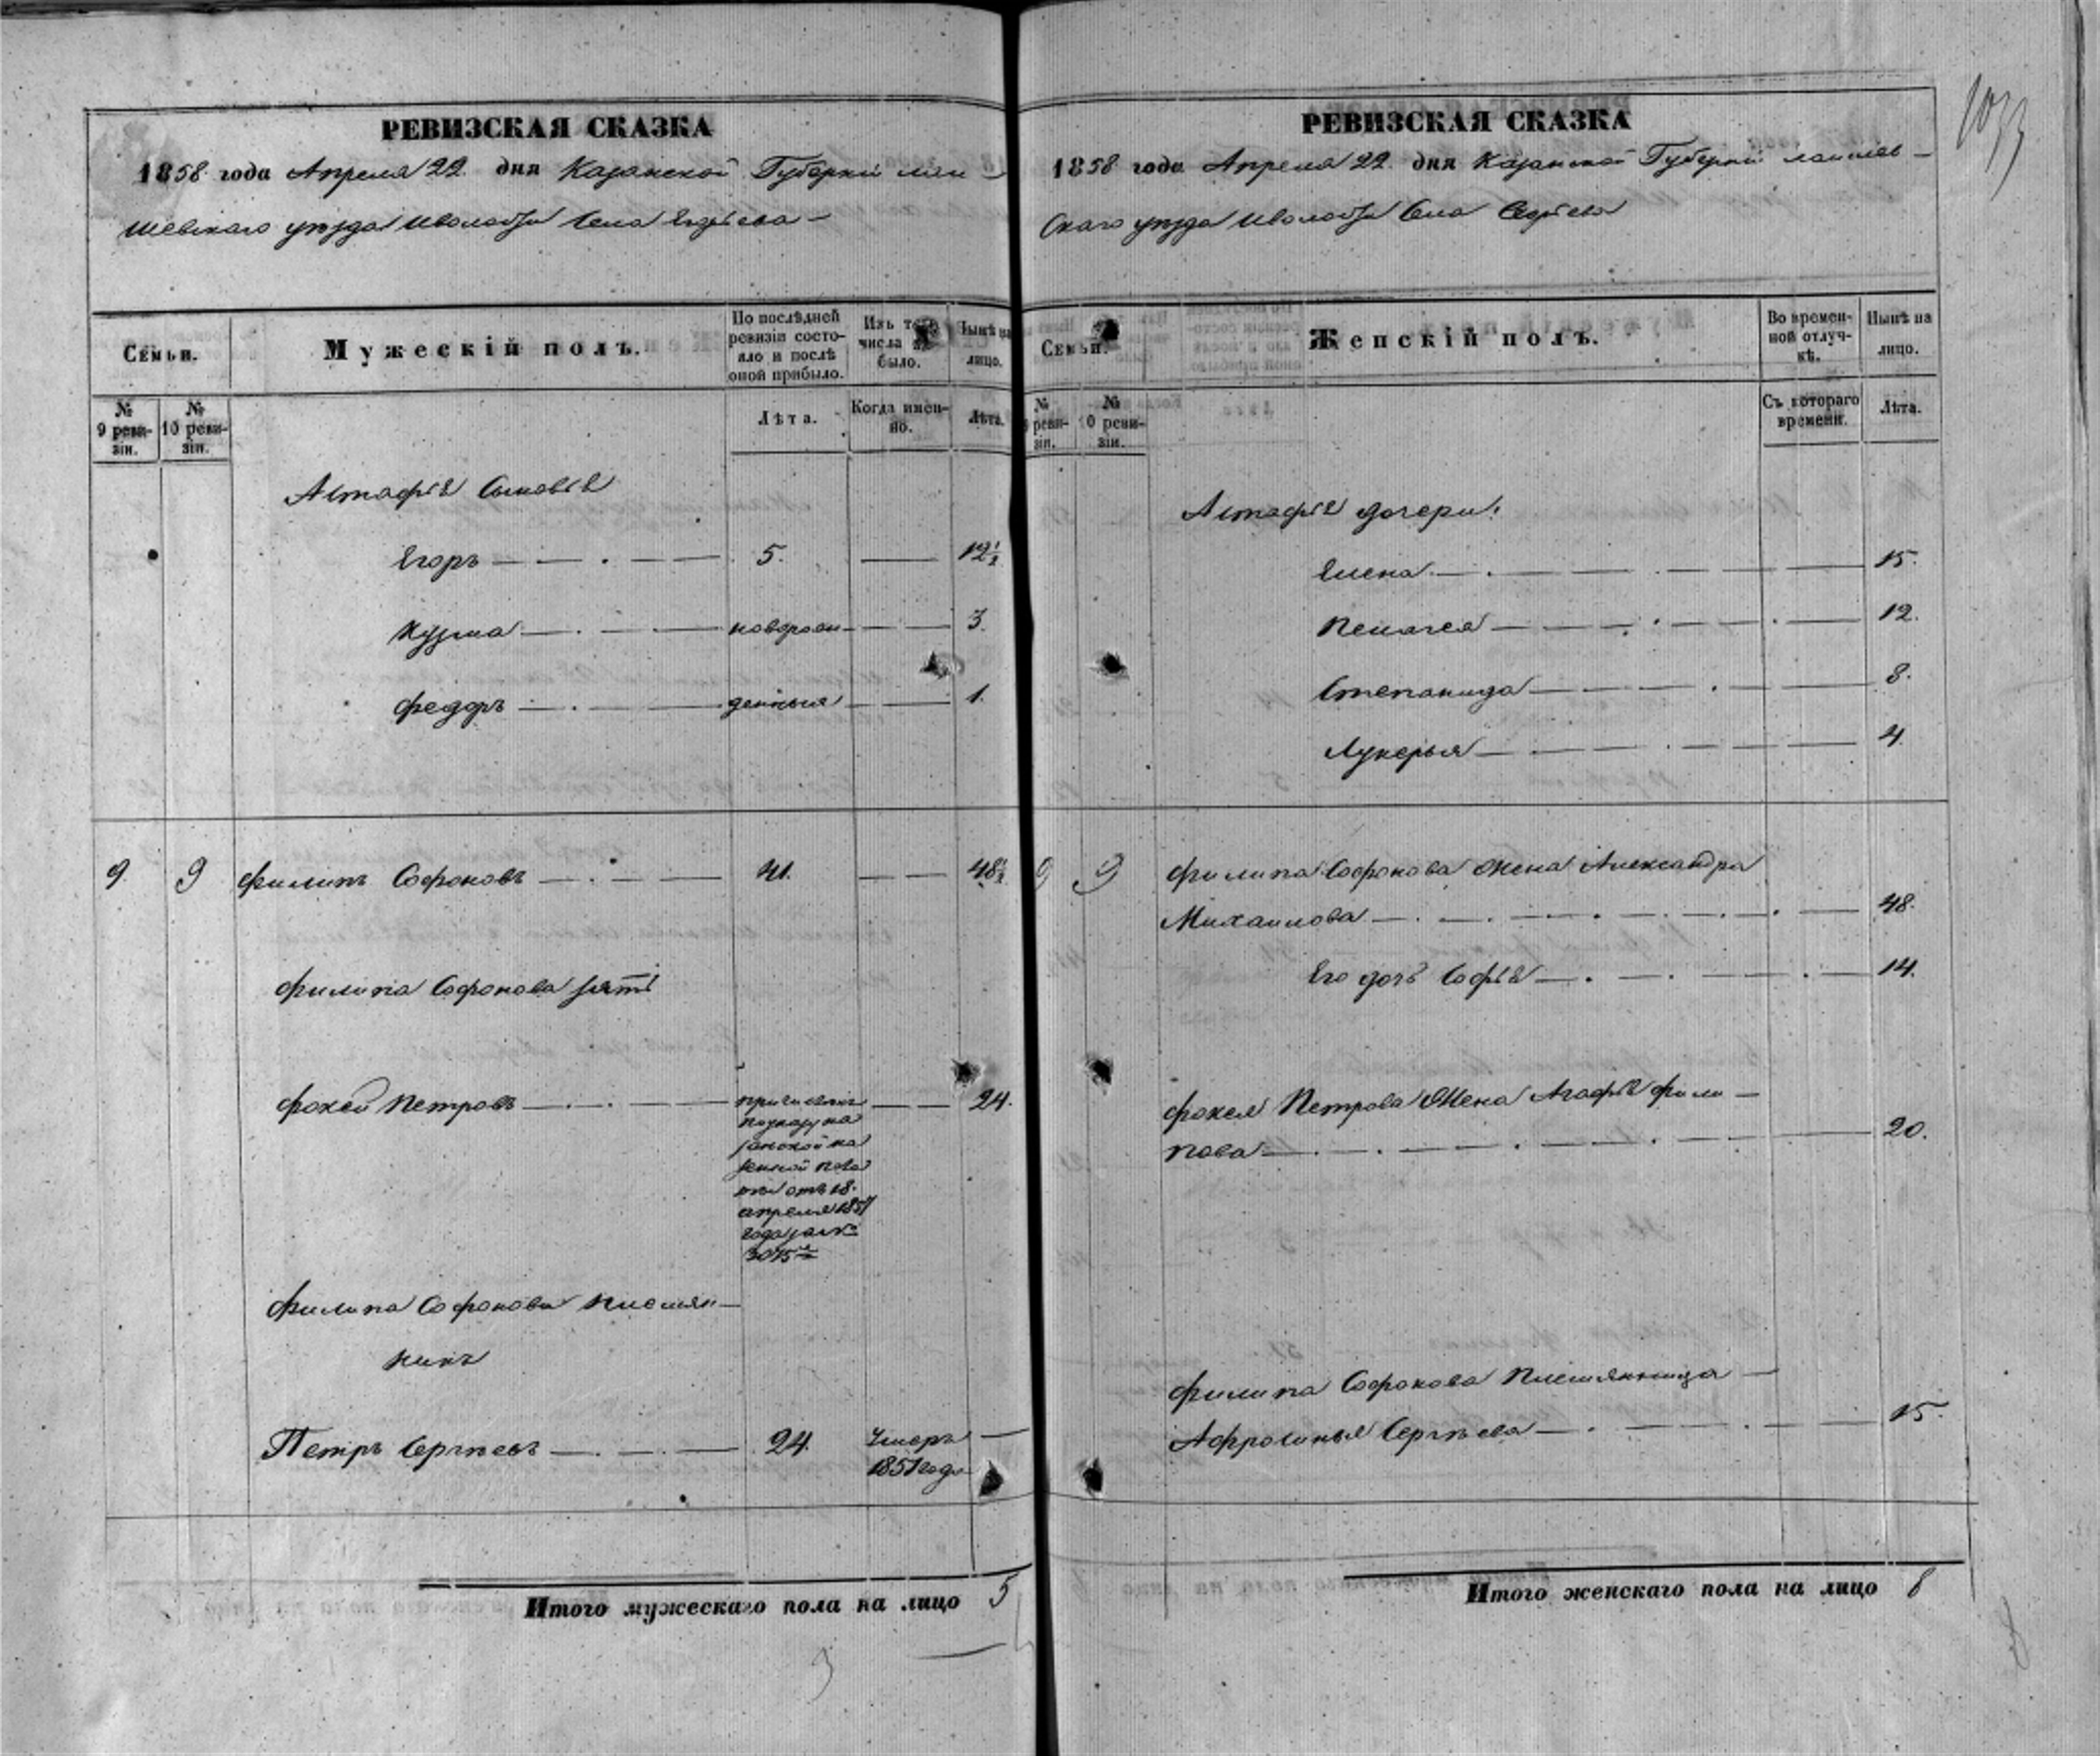 РЕВИЗСКАЯ СКАЗКА
1858 года Апреля 22 дня Казанской Губерніи Лаи-
шевскаго уѣзда и волости Села Егорьева
Семьи.
Мужескій полъ.
По послѣдней ревизіи состо-
яло и послѣ оной прибыло.
Изъ того числа вы-
было.
Нынѣ на лицо.
№ 9 реви-
зіи.
№ 10 реви-
зіи.
Лѣта.
Когда имен-
но.
Лѣта.
Астафія Сыновья
Егоръ 5. 12½
Кузма новорож- 3.
Федоръ денныя 1.
9. 9 Филипъ Софоновъ 41. 48½
Филипа Софонова зять
Фокей Петровъ причисленъ 24.
по указу Ка
занской ка
зенной пала
ты отъ 18.
апреля 1857
года за №
3075
Филипа Софонова племян-
никъ
Петръ Сергѣевъ 24. Умеръ
1851 года
Итого мужескаго пола на лицо 5
1033
РЕВИЗСКАЯ СКАЗКА
1858 года Апреля 22 дня Казанской Губерніи Лаишев-
скаго уѣзда и волости Села Егорьева
Семьи.
Женскій полъ.
Во времен-
ной отлуч-
кѣ.
Нынѣ на лицо.
№ 9 реви-
зіи.
№ 10 реви-
зіи.
Съ котораго времени.
Лѣта.
Астафія дочери:
Елена 15.
Пелагея 12.
Степанида 8.
Лукерья 4.
9 9 Филипа Софонова Жена Александра
Михаилова 48.
Его дочь Софья 14.
Фокея Петрова Жена Агафья Фили-
пова 20.
Филипа Софонова Племянница
Афросинья Сергѣева 15.
Итого женскаго пола на лицо 8